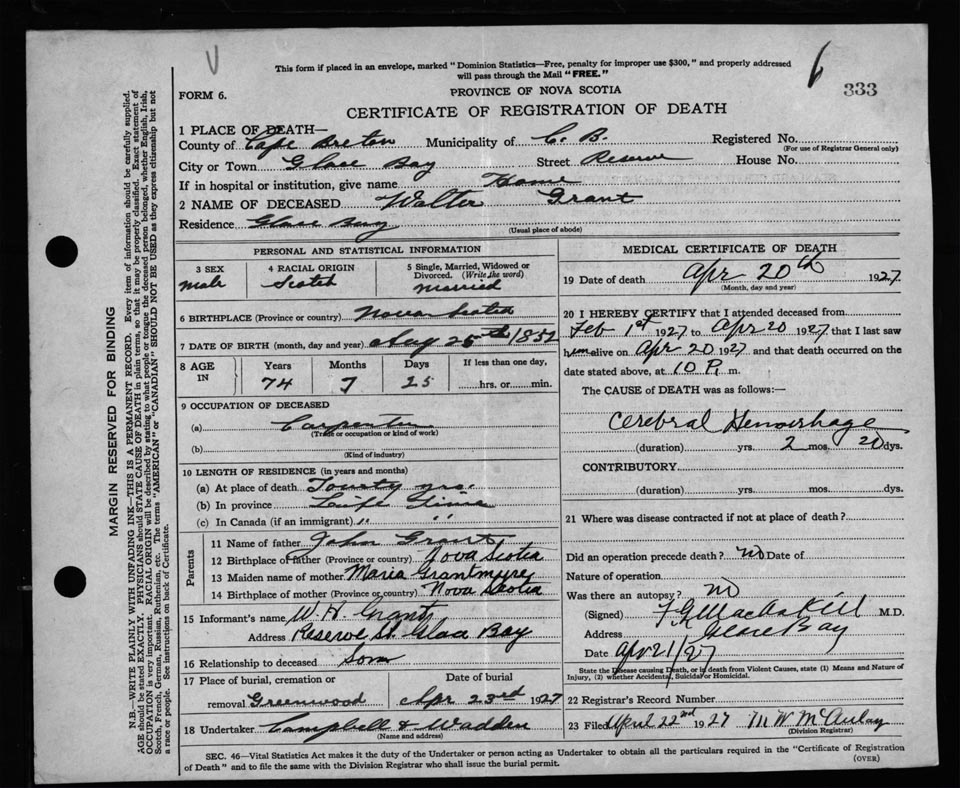 This form if placed in an envelope, marked "Dominion Statistics—Free, penalty for improper use $300," and properly addressed
will pass through the Mail "FREE."
333
FORM 6.
PROVINCE OF NOVA SCOTIA
CERTIFICATE OF REGISTRATION OF DEATH
1 PLACE OF DEATH—
County of Cape Breton Municipality of C. B. Registered No.
(For use of Registrar General only)
City or Town Glace Bay Street Reserve House No.
If in hospital or institution, give name Home
2 NAME OF DECEASED Walter Grant
Residence Glace Bay
(Usual place of abode)
PERSONAL AND STATISTICAL INFORMATION
3 SEX 4 RACIAL ORIGIN 5 Single, Married, Widowed or Divorced. (Write the word)
Male Scotch Married
6 BIRTHPLACE (Province or country) Nova Scotia
7 DATE OF BIRTH (month, day and year) Aug 25th 1852
8 AGE IN Years Months Days If less than one day,
74 7 25 hrs. or min.
9 OCCUPATION OF DECEASED
(a) Carpenter
(Trade or occupation or kind of work)
(b)
(Kind of industry)
10 LENGTH OF RESIDENCE (in years and months)
(a) At place of death yrs.
(b) In province Life Time
(c) In Canada (if an immigrant) " "
Parents
11 Name of father John Grant
12 Birthplace of father (Province or country) Nova Scotia
13 Maiden name of mother Maria Grantmyre
14 Birthplace of mother (Province or country) Nova Scotia
15 Informant's name W. H. Grant
Address Reserve St. Glace Bay
16 Relationship to deceased Son
17 Place of burial, cremation or removal Greenwood Date of burial Apr 23rd 1927
18 Undertaker Campbell & Wadden
(Name and address)
MEDICAL CERTIFICATE OF DEATH
19 Date of death Apr 20th 1927.
(Month, day and year)
20 I HEREBY CERTIFY that I attended deceased from
Feb 1st 1927 to Apr 20 1927 that I last saw
him alive on Apr 20 1927 and that death occurred on the
date stated above, at 10 P. m.
The CAUSE of DEATH was as follows:—
Cerebral Hemorrhage
(duration) yrs. 2 mos. 20 dys.
CONTRIBUTORY
(duration) yrs. mos. dys.
21 Where was disease contracted if not at place of death?
Did an operation precede death? No Date of
Nature of operation
Was there an autopsy? No
(Signed) F G MacAskill M.D.
Address Glace Bay
Date Apr 21/27
State the Disease causing Death, or in death from Violent Causes, state (1) Means and Nature of
Injury, (2) whether Accidental, Suicidal or Homicidal.
22 Registrar's Record Number
23 Filed April 22nd 1927 M W McAulay
(Division Registrar)
SEC. 46—Vital Statistics Act makes it the duty of the Undertaker or person acting as Undertaker to obtain all the particulars required in the "Certificate of Registration
of Death" and to file the same with the Division Registrar who shall issue the burial permit.
(OVER)
MARGIN RESERVED FOR BINDING
N.B.—WRITE PLAINLY WITH UNFADING INK—THIS IS A PERMANENT RECORD. Every item of information should be carefully supplied.
AGE should be stated EXACTLY. PHYSICIANS should STATE CAUSE OF DEATH in plain terms, so that it may be properly classified. Exact statement of
OCCUPATION is very important. RACIAL ORIGIN will be described by stating to what people or tongue the deceased person belonged, whether English, Irish,
Scotch, French, German, Russian, Ruthenian, etc. The terms "AMERICAN" or "CANADIAN" SHOULD NOT BE USED as they express citizenship but not
a race or people. See instructions on back of Certificate.